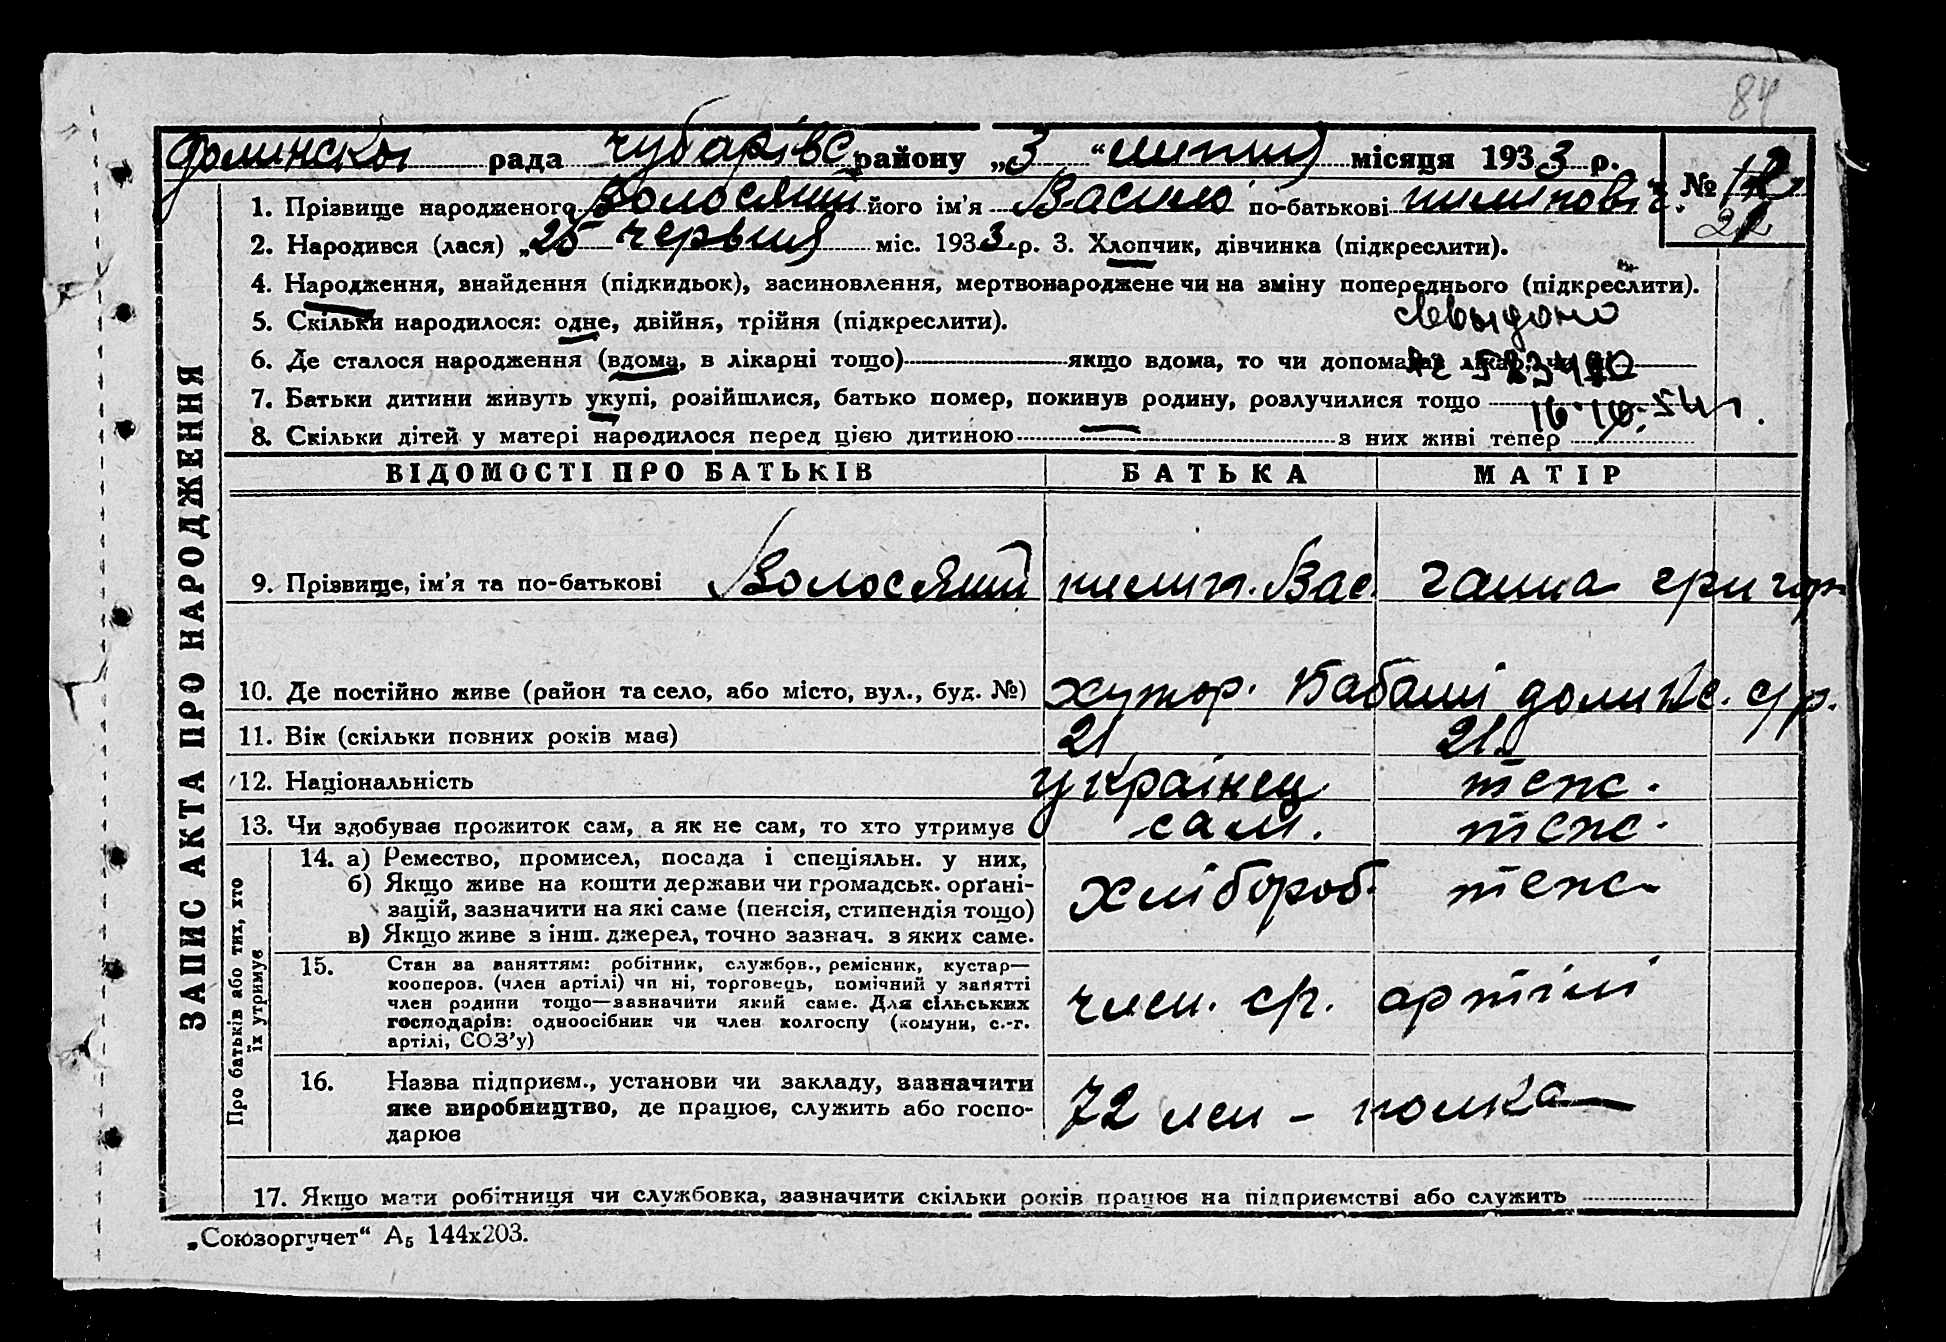 84
долинської рада Чубарівс району „3“ липня місяця 1933 р. №
1. Прізвище народженого Волосяний його ім’я Василь по-батькові пилипович.
2. Народився (лася) „25 червня міс. 1933 р. 3. Хлопчик, дівчинка (підкреслити).
4. Народження, знайдення (підкидьок), засиновлення, мертвонароджене чи на зміну попереднього (підкреслити).
5. Скільки народилося: одне, двійня, трійня (підкреслити).
6. Де сталося народження (вдома, в лікарні тощо) якщо вдома, то чи допомагав
7. Батьки дитини живуть укупі, розійшлися, батько помер, покинув родину, розлучилися тощо
8. Скільки дітей у матері народилося перед цією дитиною — з них живі тепер
ЗАПИС АКТА ПРО НАРОДЖЕННЯ
ВІДОМОСТІ ПРО БАТЬКІВ БАТЬКА МАТІР
9. Прізвище, ім’я та по-батькові Волосяний пилип. Вас. ганна григор
10. Де постійно живе (район та село, або місто, вул., буд. №) хутор. Бабани долинс. с/р.
11. Вік (скільки повних років має) 21 21
12. Національність українец теж.
13. Чи здобуває прожиток сам, а як не сам, то хто утримує сам. теж.
Про батьків або тих, хто
їх утримує
14. а) Ремество, промисел, посада і спеціяльн. у них,
б) Якщо живе на кошти держави чи громадськ. орґані-
зацій, зазначити на які саме (пенсія, стипендія тощо)
в) Якщо живе з інш. джерел, точно зазнач. з яких саме.
хлібороб. теж
15. Стан за заняттям: робітник, службов., ремісник, кустар—
кооперов. (член артілі) чи ні, торговець, помічний у занятті
член родини тощо—зазначити який саме. Для сільських
господарів: одноосібник чи член колгоспу (комуни, с.-г.
артілі, СОЗ’у)
член. ср. артілі
16. Назва підприєм., установи чи закладу, зазначити
яке виробництво, де працює, служить або госпо-
дарює
17. Якщо мати робітниця чи службовка, зазначити скільки років працює на підприємстві або служить
„Союзоргучет“ А5 144х203.